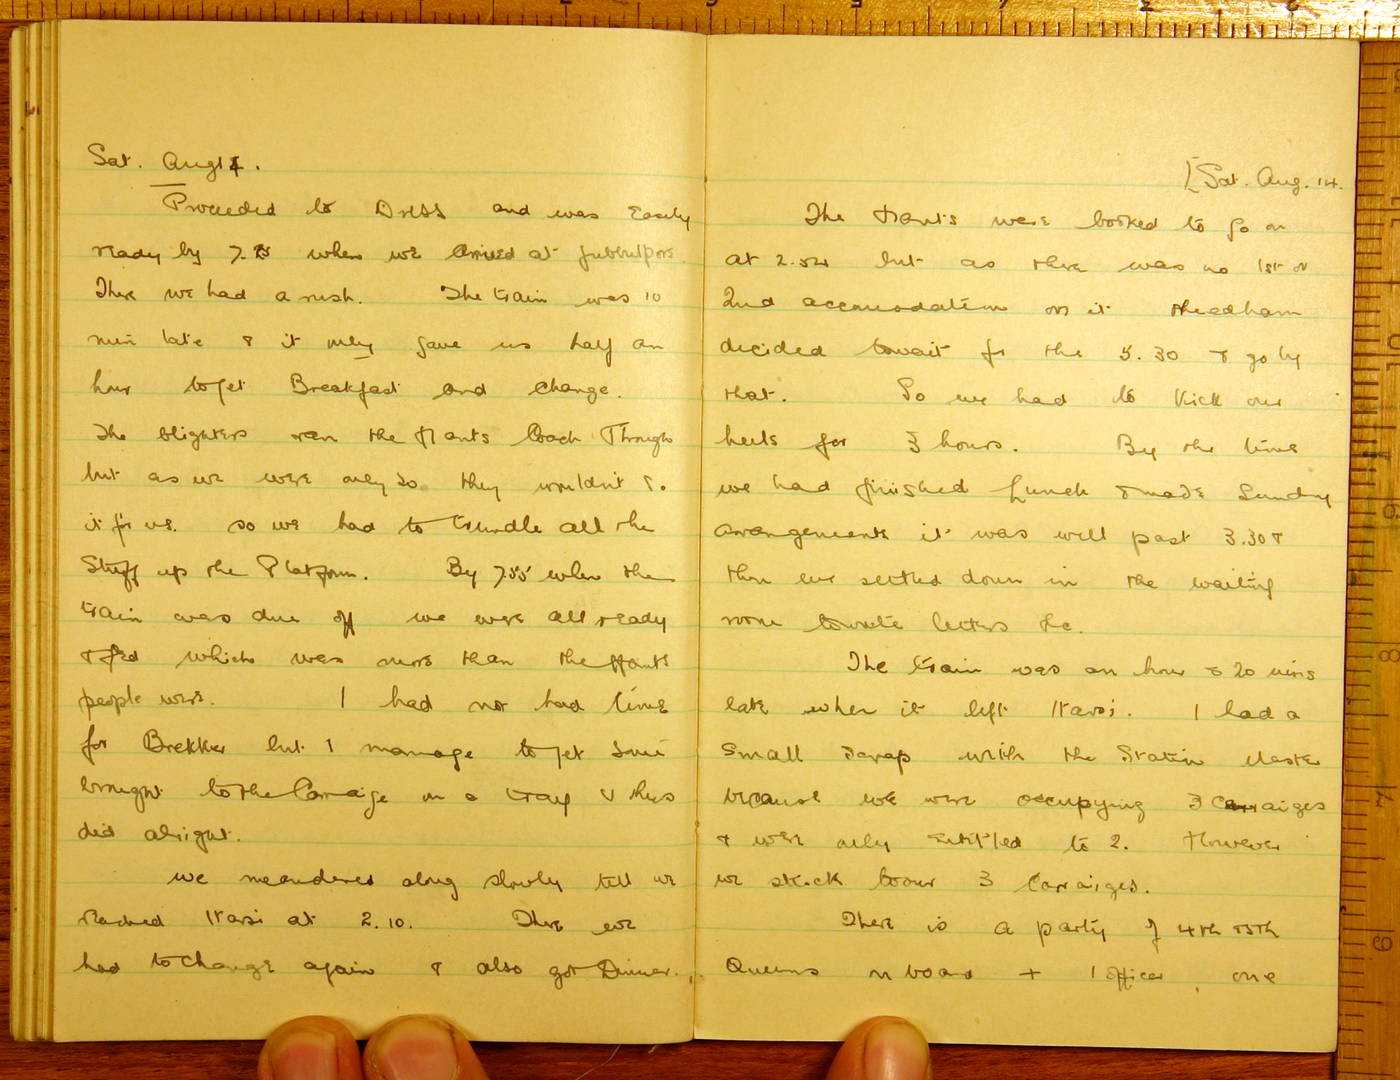 Sat. Aug 14.
Proceeded to Dress and was Easily
ready by 7.25 when we arrived at Jubbulpore.
There we had a rush. The train was 10
min late & it only gave us half an
hour to get Breakfast and change.
The blighters ran the Hants Coach Through
but as we were only 30 they wouldn't do
it for us. so we had to trundle all the
Stuff up the Platform. By 7.55 when the
train was due off we were all ready
& fed which was more than the Hants
people were. I had not had time
for Brekker but I manage to get some
brought to the Carraige on a tray & this
did alright.
We meandered along slowly till we
reached Itarsi at 2.10. There we
had to change again & also got Dinner.
[Sat. Aug. 14.
The Hants were booked to go on
at 2.52 but as there was no 1st or
2nd accomodation on it Needham
decided to wait for the 5.30 & go by
that. So we had to kick our
heels for 3 hours. By the time
we had finished Lunch & made Sundry
arrangements it was well past 3.30 &
then we settled down in the waiting
room to write letters etc.
The train was an hour & 20 mins
late when it left Itarsi. I had a
Small scrap with the Station Master
because we were occupying 3 Carraiges
& were only entitled to 2. However
we stuck to our 3 Carraiges.
There is a party of 4th & 5th
Queens on board + 1 officer, one